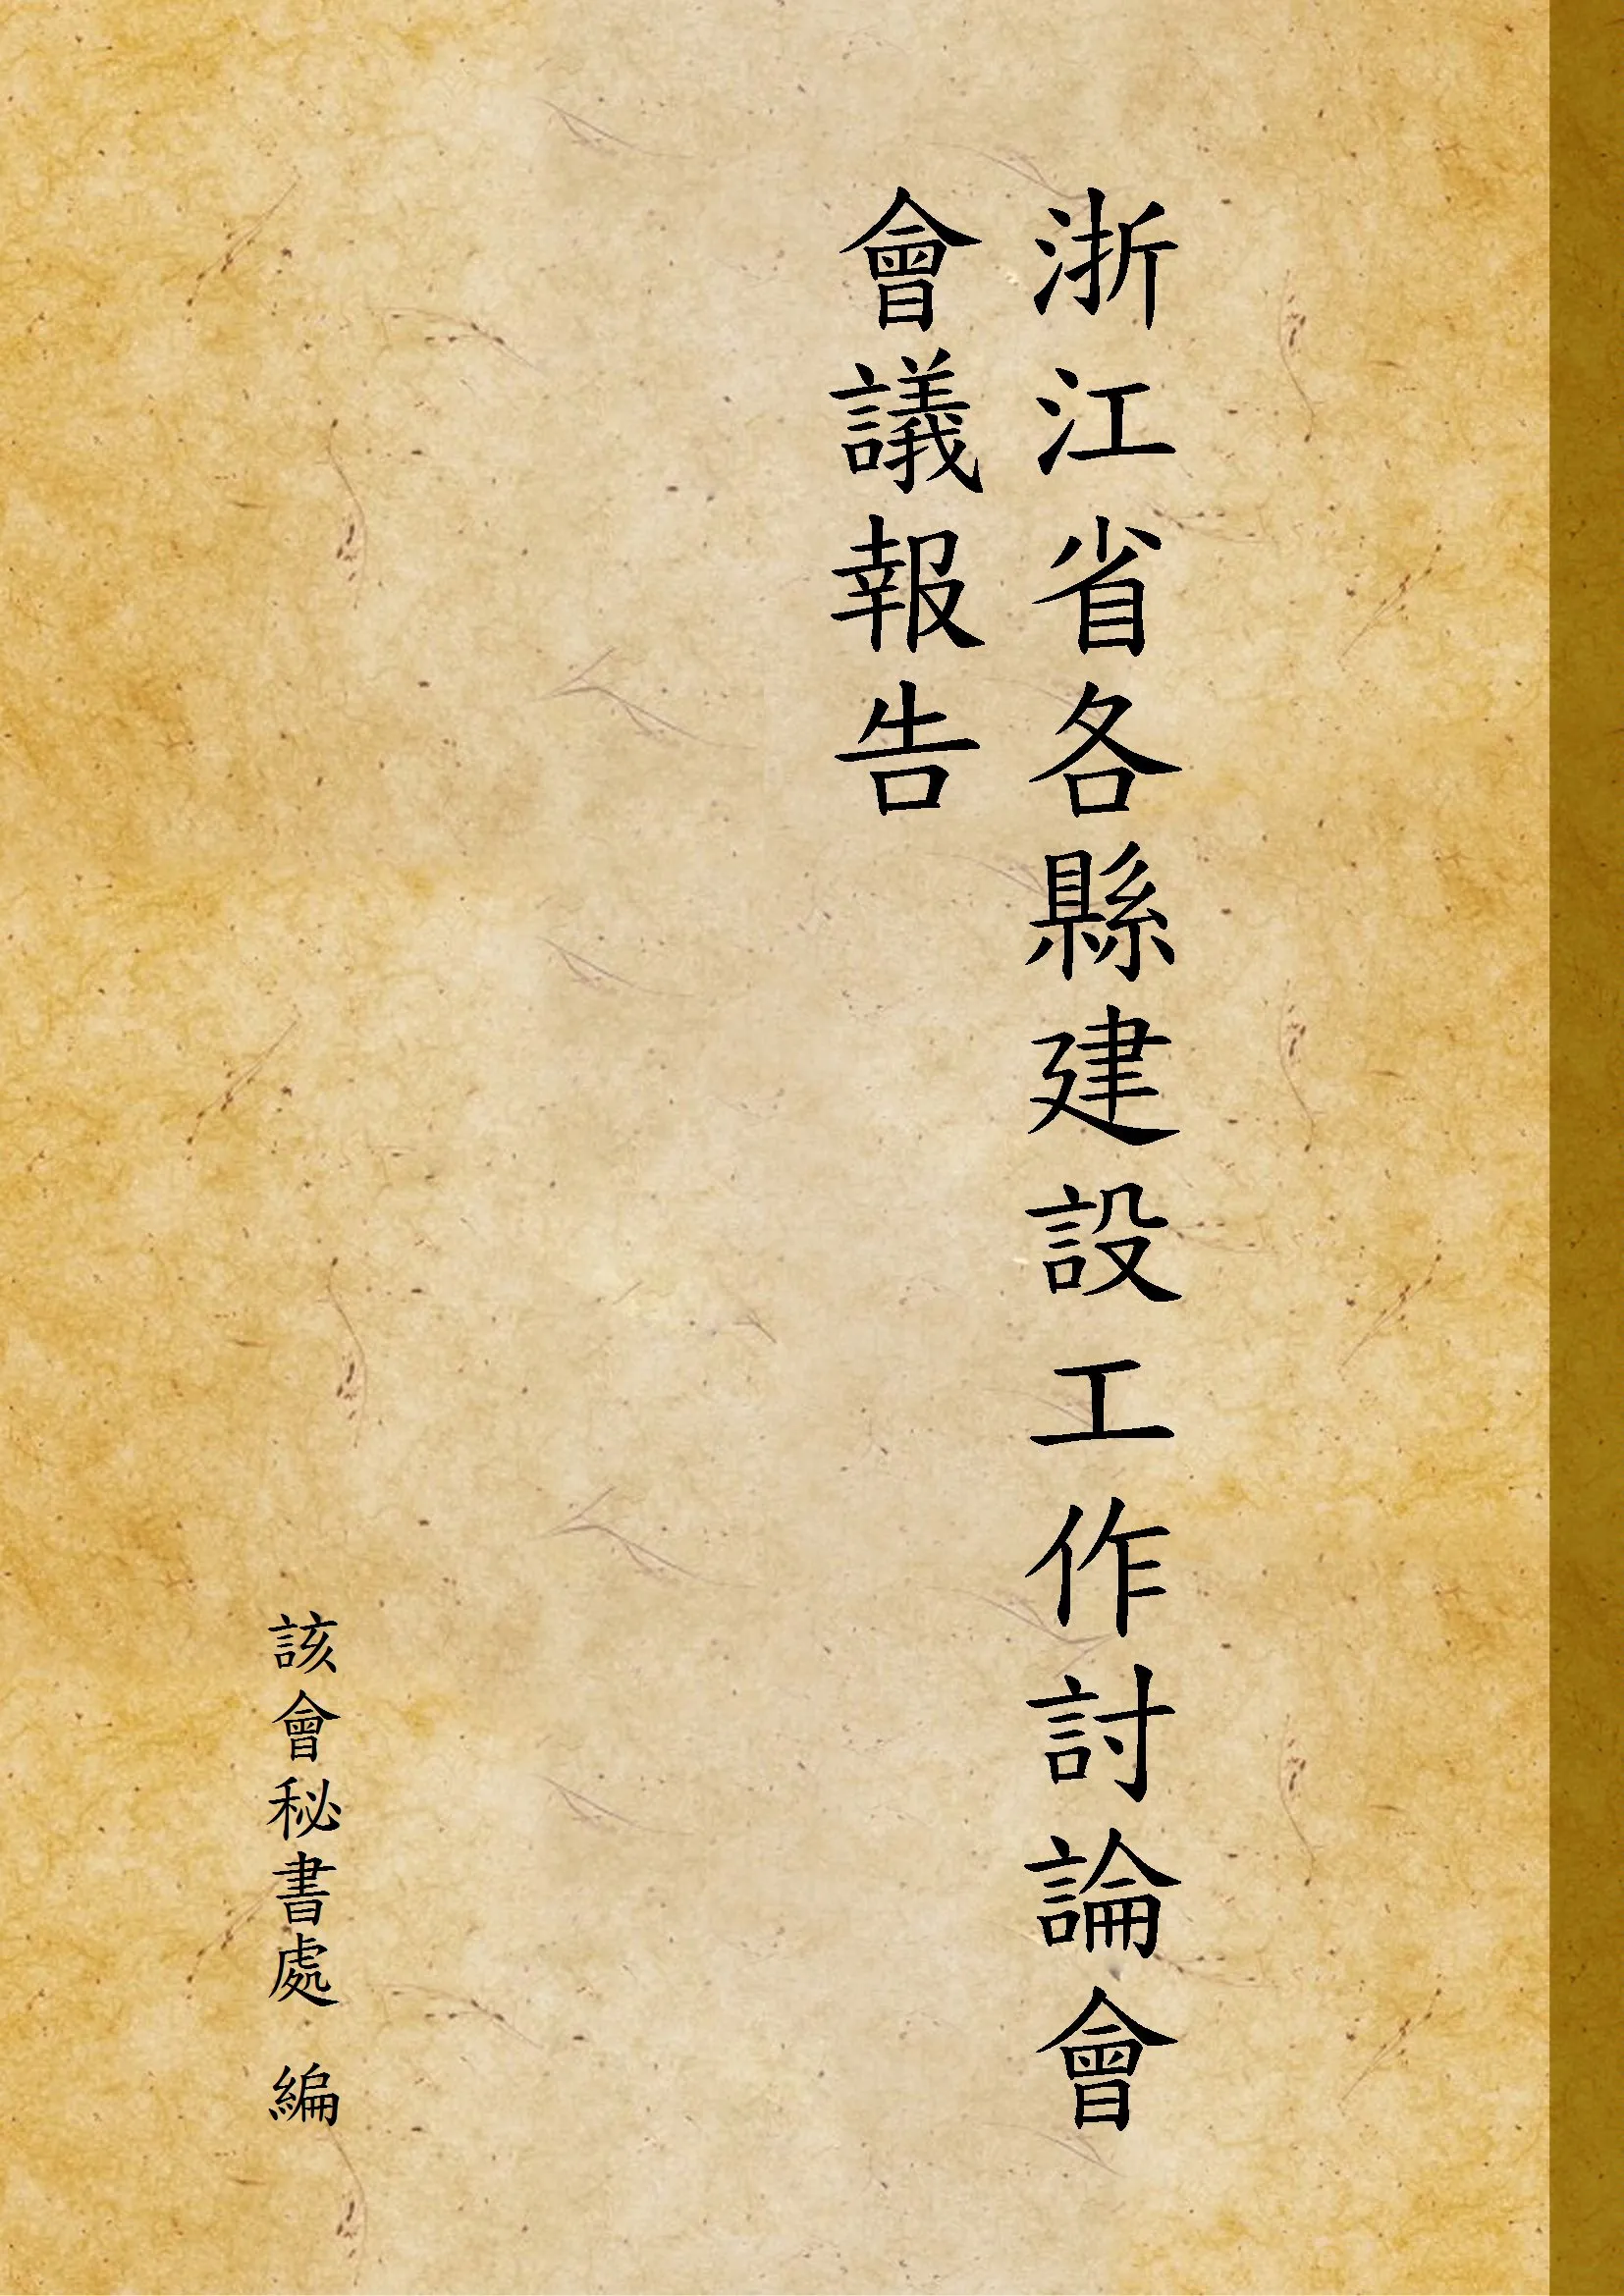 浙江省各縣建設工作討論會
會議報告
該會秘書處 編